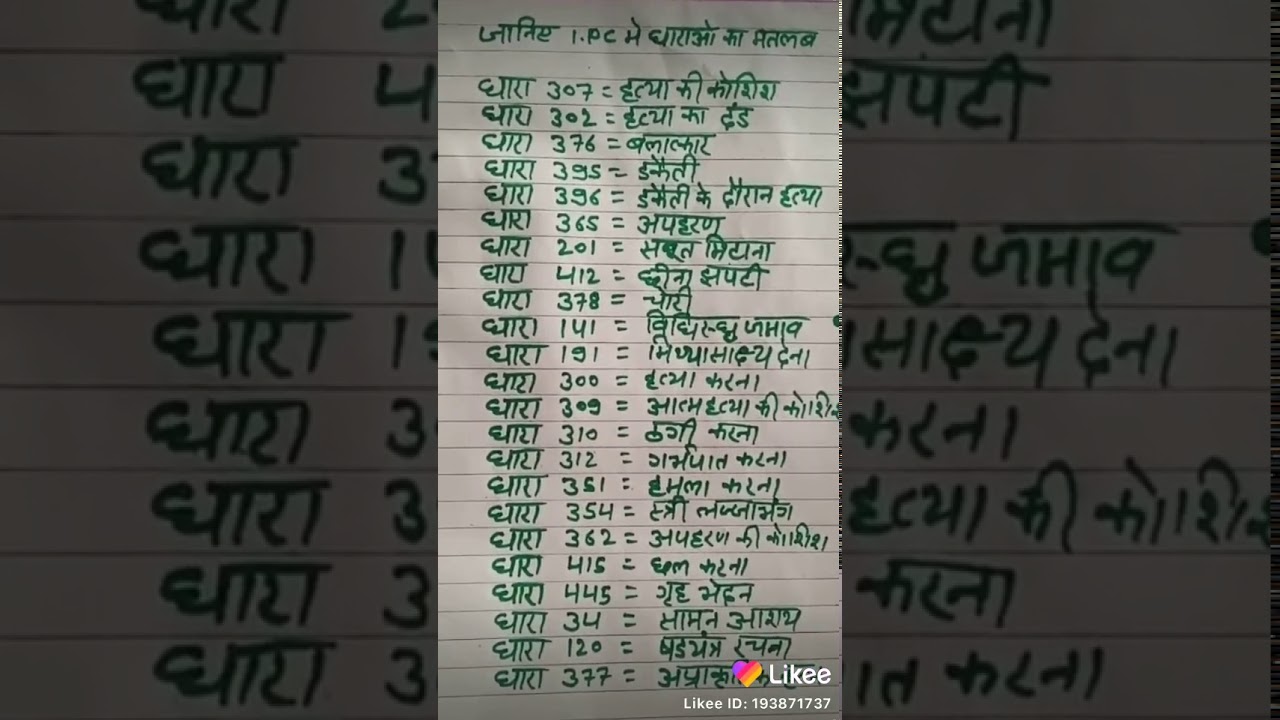 जानिए I.PC मे धाराओ का मतलब
धारा 307 = हत्या की कोशिश
धारा 302 = हत्या का दंड
धारा 376 = बलात्कार
धारा 395 = डकैती
धारा 396 = डकैती के दौरान हत्या
धारा 365 = अपहरण
धारा 201 = सबूत मिटाना
धारा 412 = छीना झपंटी
धारा 378 = चोरी
धारा 141 = विधिरुध्द जमाव
धारा 191 = मिथ्यासाक्ष्य देना
धारा 300 = हत्या करना
धारा 309 = आत्महत्या की कोशिश
धारा 310 = ठगी करना
धारा 312 = गर्भपात करना
धारा 351 = हमला करना
धारा 354 = स्त्री लज्जाभंग
धारा 362 = अपहरण की कोशिश
धारा 415 = छल करना
धारा 445 = गृह भेदन
धारा 34 = सामंन आशय
धारा 120 = षडयंत्र रचना
धारा 377 =
Likee
Likee ID: 193871737